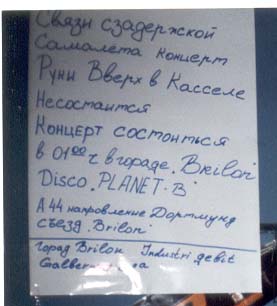 Связи сзадержской
Самалета концерт
Руки Вверх в Касселе
Несостаится
Концерт состоиться
в 01⁰⁰ ч в городе "Brilon"
Disco "PLANET-B"
A 44 напровление Дортмунд
съезд "Brilon"
город Brilon Industri gebit